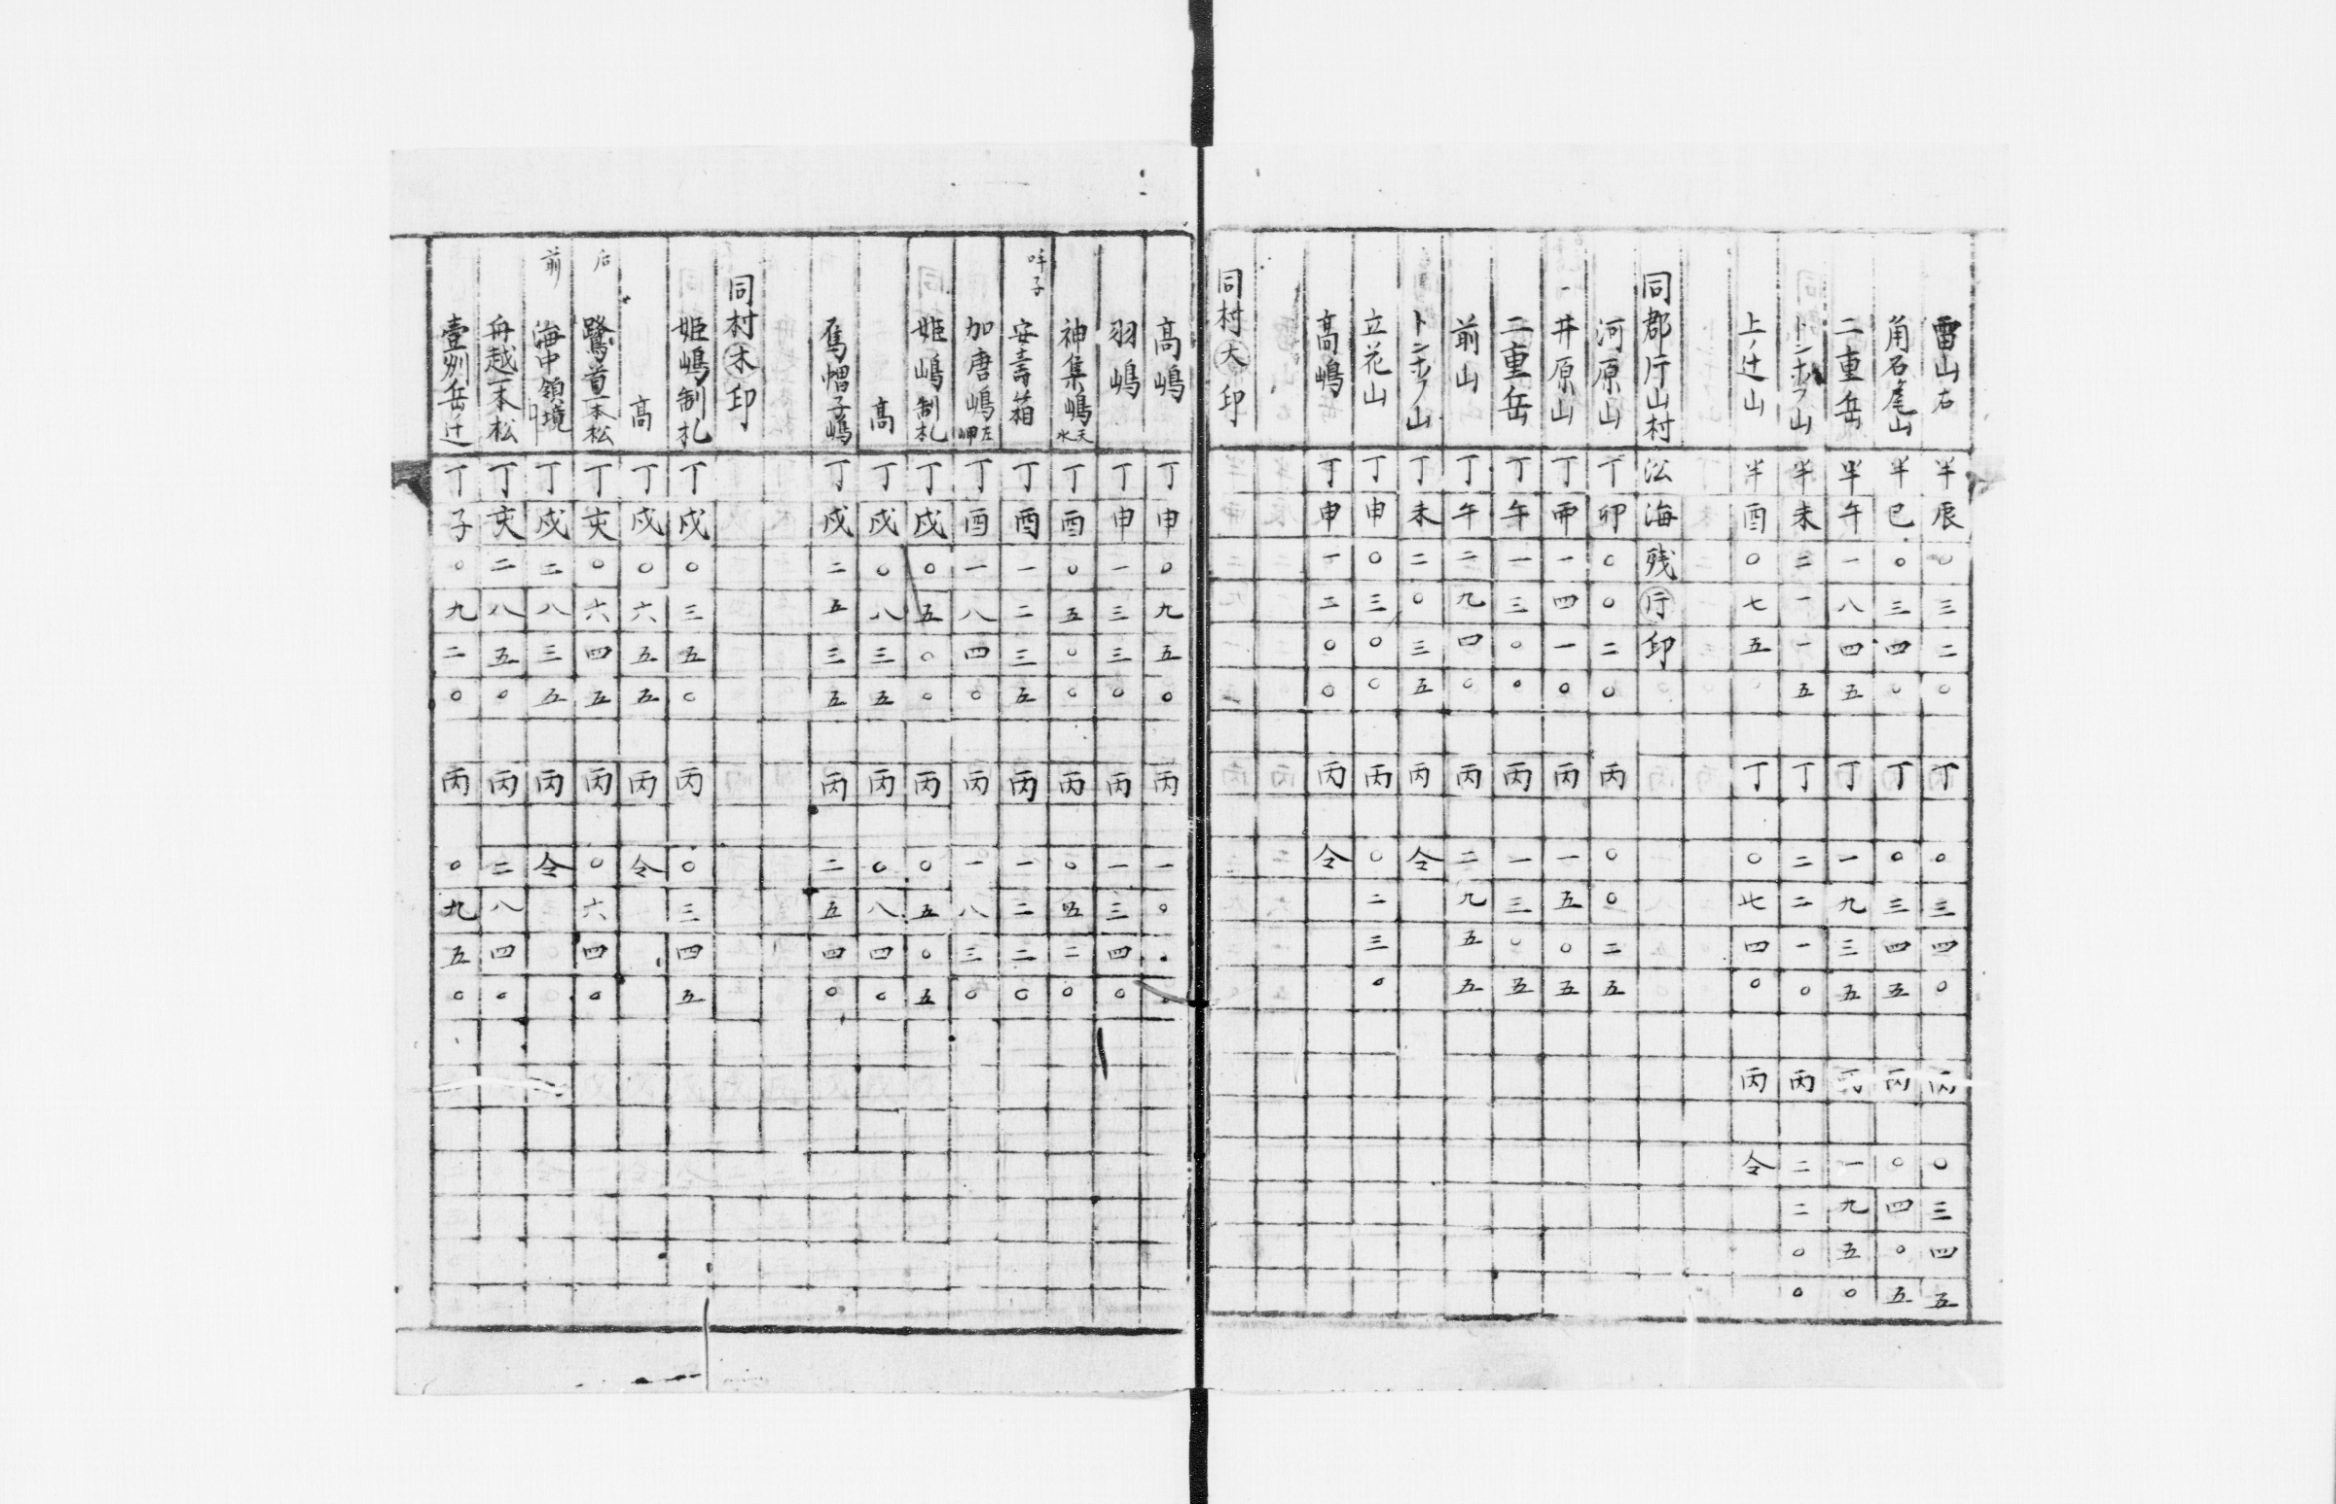 雷山右 半辰〇三二〇 丁〇三四〇 丙〇三四五
角石尾山 半巳〇三四〇 丁〇三四五 丙〇四〇五
二重岳 半午一八四五 丁一九三五 丙一九五〇
トンホノ山 半未二一一五 丁二二一〇 丙二二〇〇
上ノ辻山 半酉〇七五〇 丁〇七四〇 丙仝
同郡片山村 沿海残㊞印
河原山 丁卯〇〇二〇 丙〇〇二五
井原山 丁丙一四一〇 丙一五〇五
二重岳 丁午一三〇〇 丙一三〇五
前山 丁午二九四〇 丙二九五五
トンホノ山 丁未二〇三五 丙仝
立花山 丁申〇三〇〇 丙〇二三〇
髙嶋 丁申一二〇〇 丙仝
同村大印
髙嶋 丁申〇九五〇 丙一〇〇〇
羽嶋 丁申一三三〇 丙一三四〇
神集嶋天水 丁酉〇五〇〇 丙〇五二〇
呼子
安壽箱 丁酉一二三五 丙一二二〇
加唐嶋左岬 丁酉一八四〇 丙一八三〇
姫嶋制札 丁戍〇五〇〇 丙〇五〇五
髙 丁戍〇八三五 丙〇八四〇
馬帽子嶋 丁戍二五三五 丙二五四〇
同村木印
姫嶋制札 丁戍〇三五〇 丙〇三四五
髙 丁戍〇六五五 丙仝
后
鷺首一本松 丁亥〇六四五 丙〇六四〇
前
海中領境 丁戍二八三五 丙仝
舟越一本松 丁亥二八五〇 丙二八四〇
壹州岳辻 丁子〇九二〇 丙〇九五〇